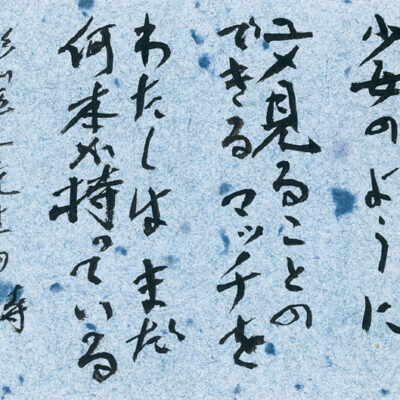 少女のように
ユメ見ることの
できるマッチを
わたしはまだ
何本か持っている
杉山平一先生の詩